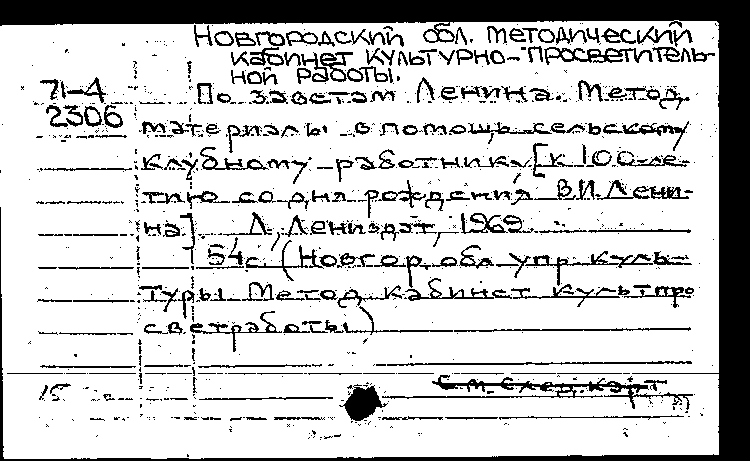 Новгородский обл. методический
кабинет культурно-просветитель-
ной работы.
71-4
2306
По заветам Ленина. Метод.
материалы в помощь сельскому
клубному работнику, [к 100-ле-
тию со дня рождения В.И. Лени-
на]. Л., Лениздат, 1969.
54с. (Новгор. обл. упр. куль-
туры. Метод. кабинет культпро
светработы)
См. след. карт
15